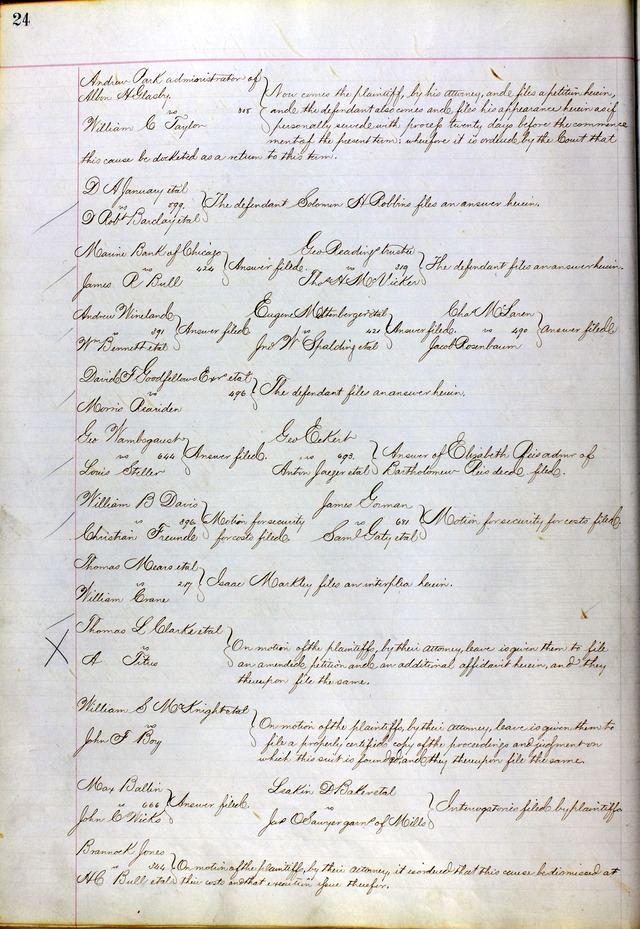 24
Andrew Park administrator of
Albin H Glasby
vs 305
William C Taylor
Now comes the plaintiff, by his attorney, and files a petition herein,
and the defendant also comes and files his appearance herein as if
personally served with process twenty days before the commence
ment of the present term: wherefore it is ordered by the Court that
this cause be docketed as a return to this term.
D A January etal
vs 599
D Robt Barclay etal
The defendant Solomon H Robbins files an answer herein.
Marine Bank of Chicago
vs 424
James R Bull
Answer filed.
Geo Reading trustee
vs 219
Thos H McVicker
The defendant files an answer herein.
Andrew Wineland
vs 291
Wm Bennett etal
Answer filed
Eugene Mttenberger etal
vs 421
Jno W Spalding etal
Answer filed.
Chas McLaren
vs 490
Jacob Rosenbaum
Answer filed
David F Goodfellows Exr etal
vs 496
Morris Reariden
The defendant files an answer herein.
Geo Wambsgaust
vs 644
Louis Stiller
Answer filed.
Geo Eckert
vs 693.
Anton Jaeger etal
Answer of Elizabeth Reis admr of
Bartholomew Reis decd filed.
William B Davis
vs 396
Christian Freund
Motion for security
for costs filed
James Gorman
vs 681
Saml Gaty etal
Motion for security for costs filed.
Thomas Mears etal
vs 217
William Crane
Isaac Markley files an interplea herein.
Thomas L Clarke etal
vs
A Titus
On motion of the plaintiffs, by their attorney, leave is given them to file
an amended petition and an additional affidavit herein, and they
thereupon file the same.
William S McKnight etal
vs
John F Boy
On motion of the plaintiffs, by their attorney, leave is given them to
file a properly certified copy of the proceedings and judgment on
which this suit is founded, and they thereupon file the same.
Max Ballin
vs 666
John C Wicks
Answer filed.
Leakin D Baker etal
vs
Jas O Sawyer garnee of Mills
Interrogatories filed by plaintiffs
Brannock Jones
vs 244
H C Bull etal
On motion of the plaintiff, by their attorney, it is ordered that this cause be dismissed at
their costs and that execution issue therefor.